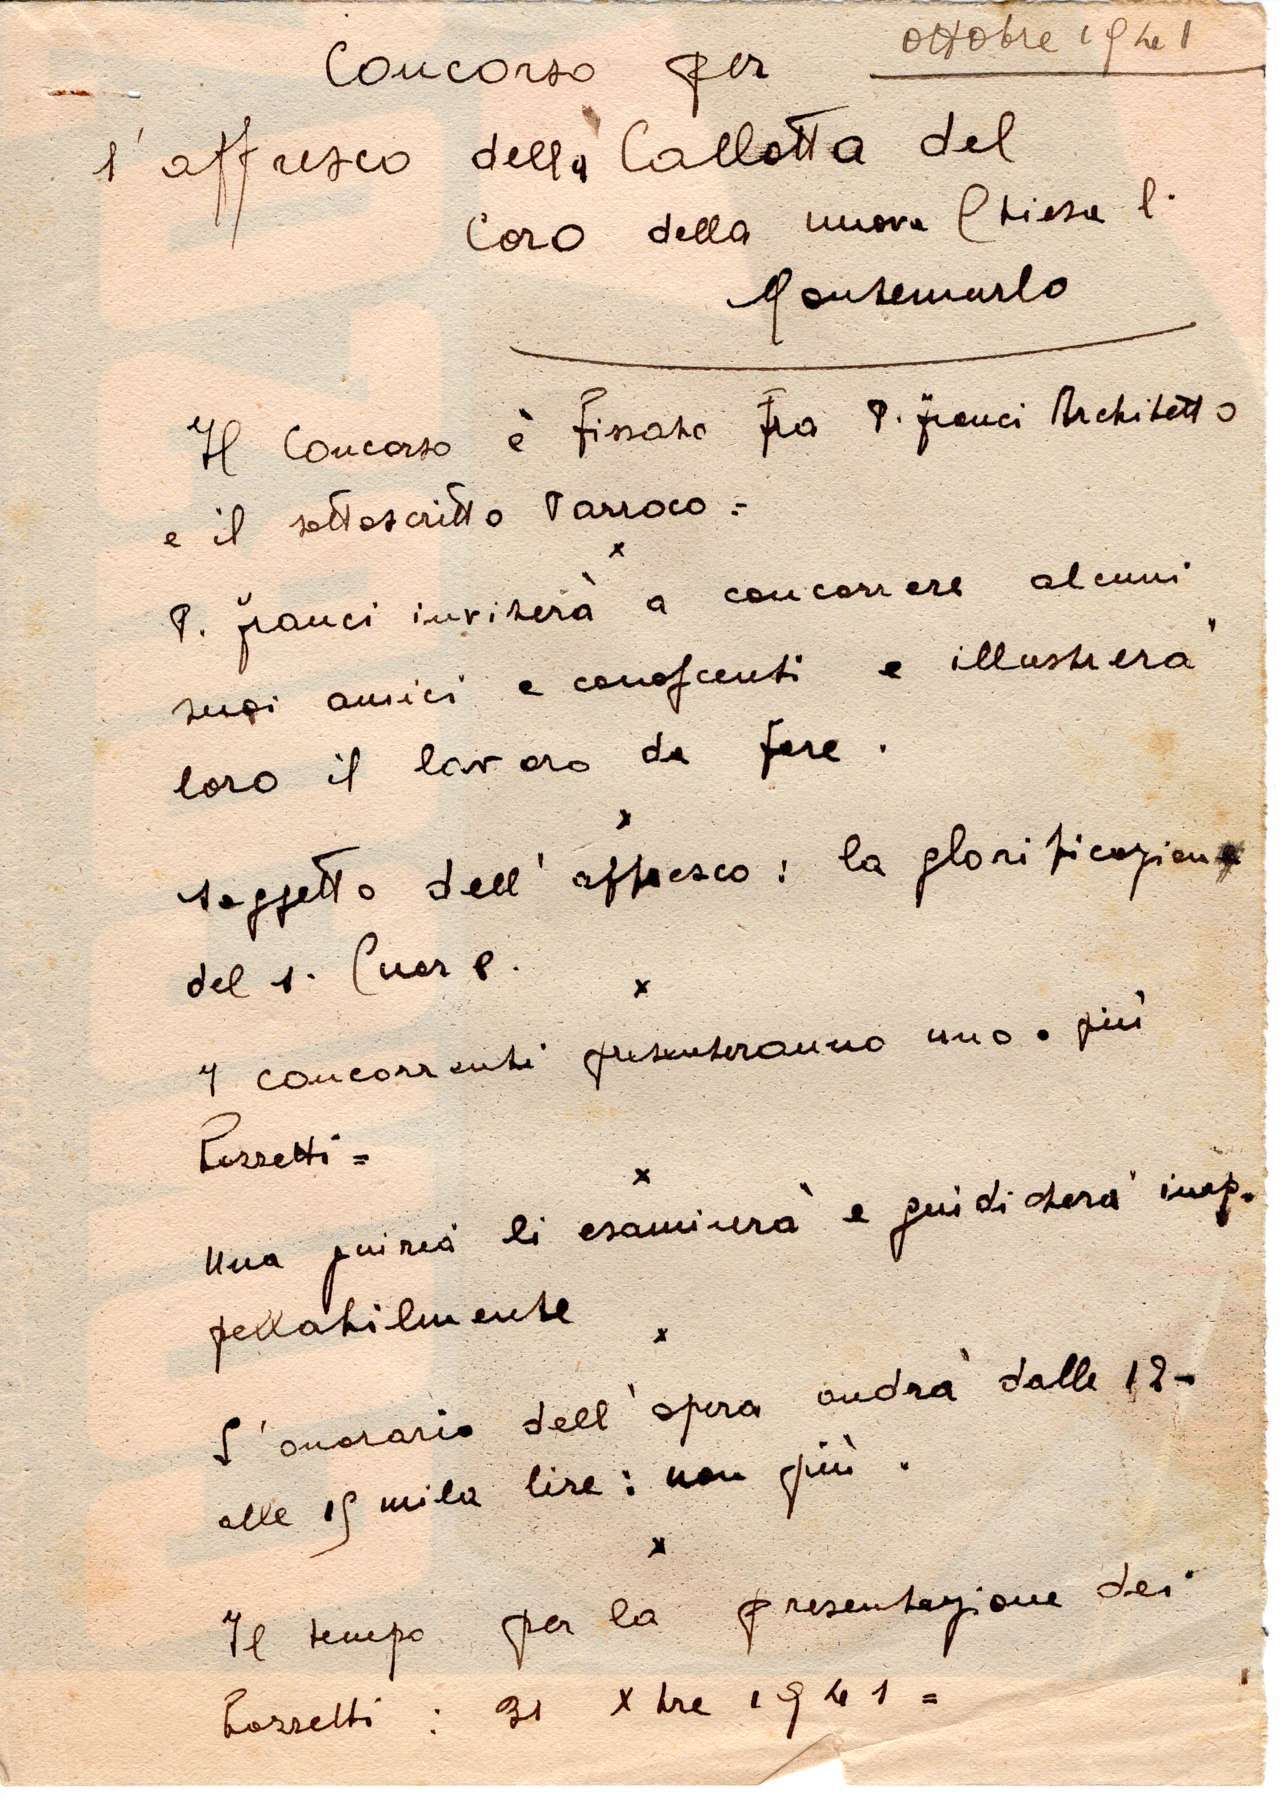 ottobre 1941
Concorso per
l'affresco della Callotta del
Coro della nuova Chiesa di
Montemurlo
Il Concorso è fissato fra P. Franci Architetto
e il sottoscritto Parroco =
x
P. Franci inviterà a concorrere alcuni
suoi amici e conoscenti e illustrerà
loro il lavoro da fare.
x
Soggetto dell'affresco: la glorificazione
del S. Cuore.
x
I concorrenti presenteranno uno o più
Bozzetti =
x
Una guiria li esaminerà e guidicherà inap-
pellabilmente
x
L'onorario dell'opera andrà dalle 12-
alle 15 mila lire: non più.
x
Il tempo per la presentazione dei
Bozzetti: 31 Xbre 1941 =